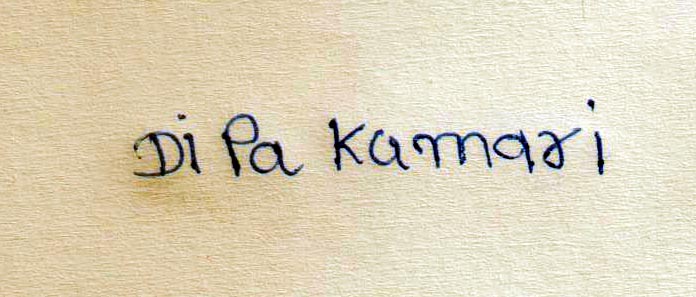 Dipa Kumari